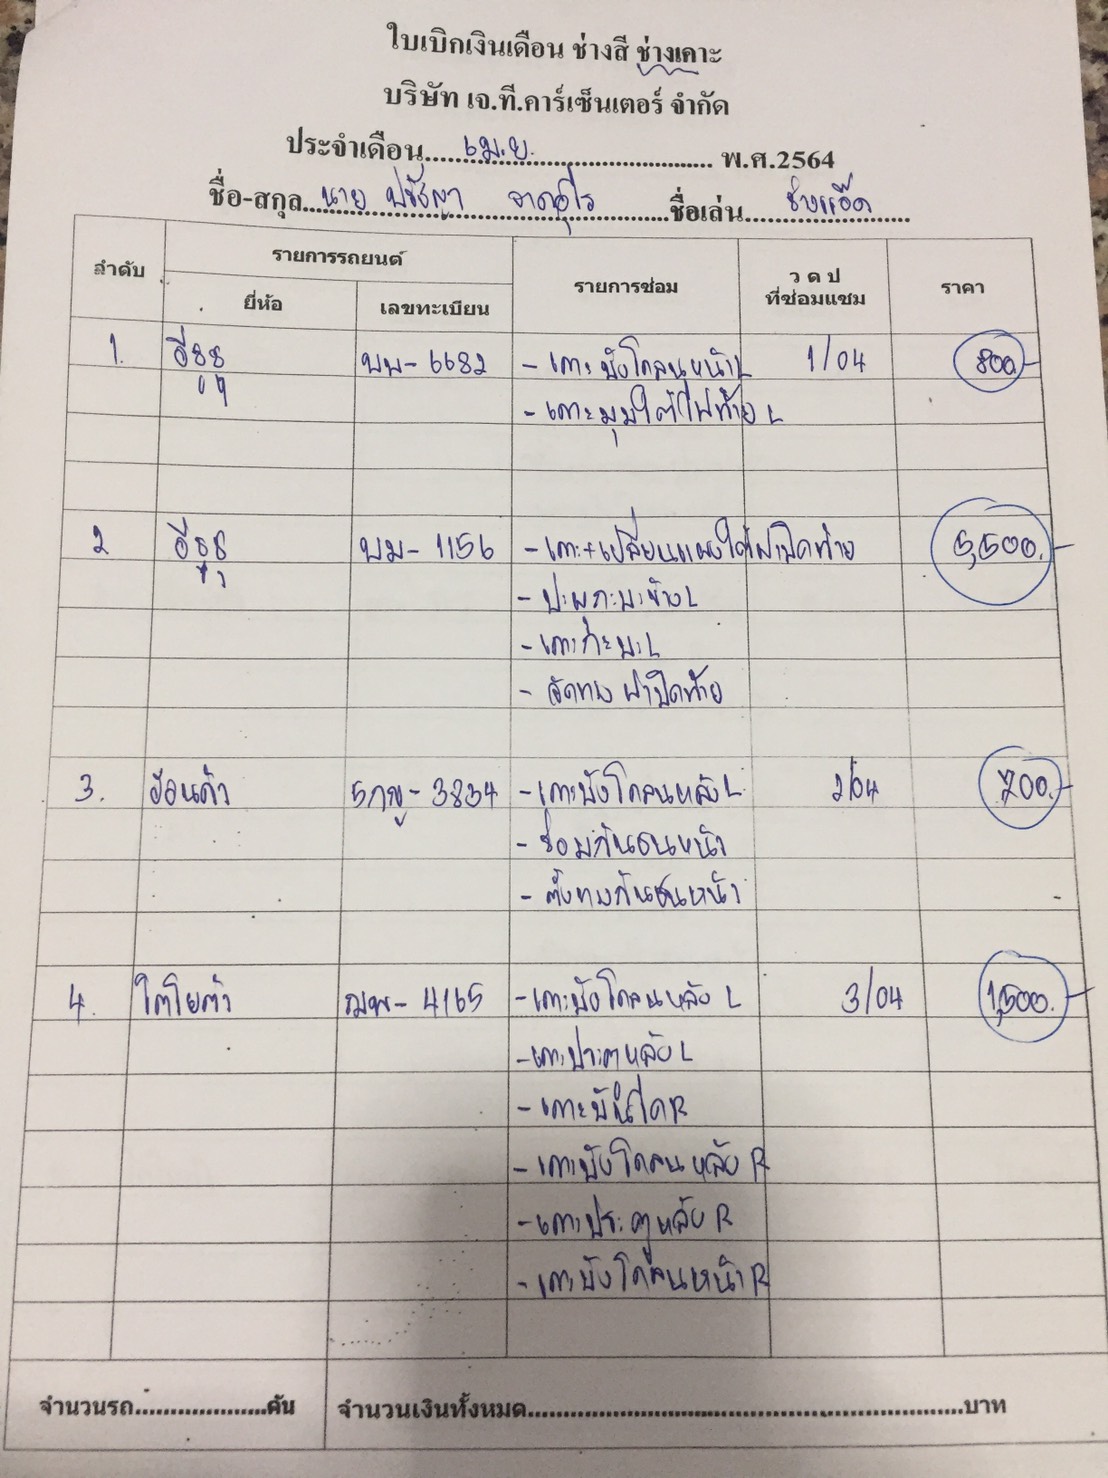 ใบเบิกเงินเดือน ช่างสี ช่างเคาะ
บริษัท เจ.ที.คาร์เซ็นเตอร์ จำกัด
ประจำเดือน เม.ย. พ.ศ.2564
ชื่อ-สกุล นาย ปรัชญา ชื่อเล่น ช่างแอ๊ด
ลำดับ รายการรถยนต์ รายการซ่อม ว ด ป ที่ซ่อมแซม ราคา
ยี่ห้อ เลขทะเบียน
1. อีซูซุ บพ-6682 - เคาะบังโคลนหน้า L 1/04 800.-
- เคาะมุมใต้ไฟท้าย L
2 อีซูซุ บม-1156 - เคาะ+เปลี่ยนแผงใต้ฝาปิดท้าย 5,500.-
- ปะผุกะบะข้าง L
- เคาะกะบะ L
- จัดทรง ฝาปิดท้าย
3. ฮอนด้า 5กญ-3834 - เคาะบังโคลนหลัง L 2/04 700.-
- ซ่อมกันชนหน้า
- ตั้งทรงกันชนหน้า
4. โตโยต้า ฌพ-4165 - เคาะบังโคลนหลัง L 3/04 1,500.-
- เคาะประตูหลัง L
- เคาะบันได R
- เคาะบังโคลนหลัง R
- เคาะประตูหลัง R
- เคาะบังโคลนหน้า R
จำนวนรถ คัน จำนวนเงินทั้งหมด บาท